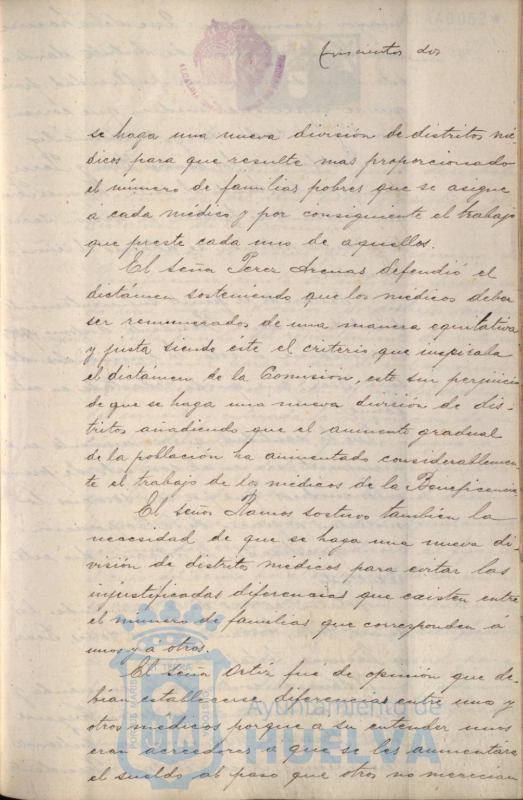 trescientos dos
se haga una nueva división de distritos mé-
dicos para que resulte mas proporcionado
el número de familias pobres que se asigne
á cada médico y por consiguiente el trabajo
que preste cada uno de aquellos.
El señor Perez Arenas defendió el
dictámen sosteniendo que los médicos deben
ser remunerados de una manera equitativa
y justa siendo éste el criterio que inspiraba
el dictámen de la Comisión, esto sin perjuicio
de que se haga una nueva división de dis-
tritos añadiendo que el aumento gradual
de la población ha aumentado considerablemen-
te el trabajo de los médicos de la Beneficencia
El señor Ramos sostuvo tambien la
necesidad de que se haga una nueva di-
visión de distritos medicos para cortar las
injustificadas diferencias que existen entre
el número de familias que corresponden á
unos y á otros.
El señor Ortiz fué de opinión que de-
bian establecerse diferencias entre uno y
otros medicos porque a su entender unos
eran acreedores a que se les aumentára
el sueldo al paso que otros no merecian
Ayuntamiento de
HUELVA